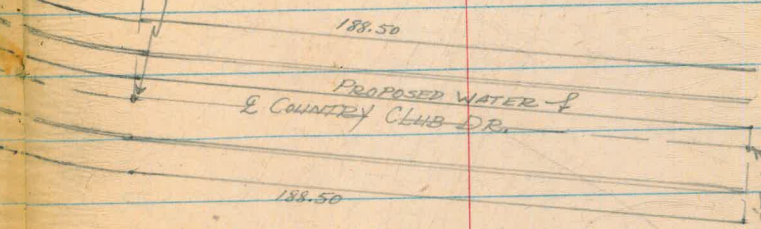 188.50
PROPOSED WATER
℄ COUNTRY CLUB DR.
188.50